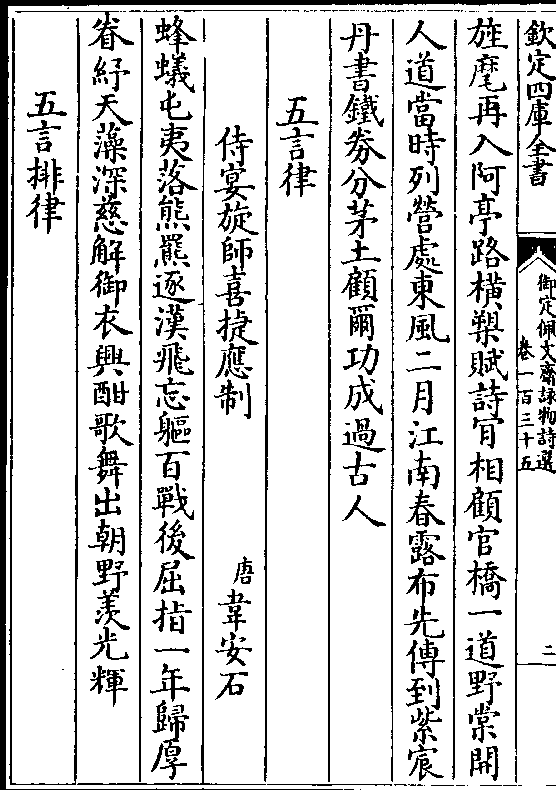 欽定四庫全書
御定佩文齋詠物詩選
卷一百三十五
二
旌麾再入阿亭路橫槊賦詩肎相顧官橋一道野棠開
人道當時列營處東風二月江南春露布先傳到紫宸
丹書鐵劵分茅土顧爾功成過古人
五言律
侍宴旋師喜捷應制
唐韋安石
蜂蟻屯夷落熊羆逐漢飛忘軀百戰後屈指一年歸厚
眷紓天藻深慈解御衣興酣歌舞出朝野羨光輝
五言排律